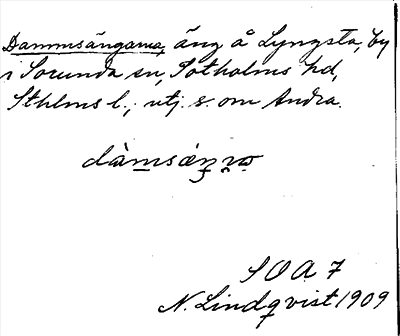 Dammsängarna, äng å Lyngsta, by
i Sorunda sn, Sotholms hd,
Sthlms l., utj. s. om Andra.
dàmsáŋ̣ṛω
SOA 7
N. Lindqvist 1909